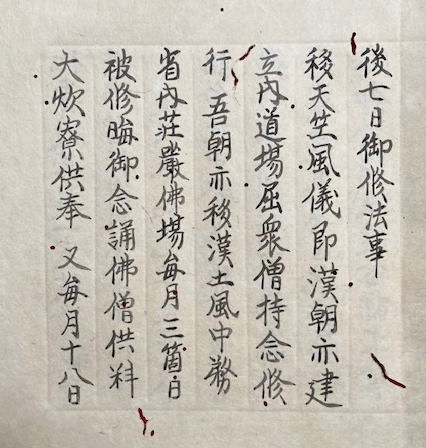 後七日御修法事
移天竺風儀即漢朝亦建
立內道場屈衆僧持念修
行　吾朝亦移漢土風中務
省內莊嚴佛場每月三箇日
被修晦御念誦佛僧供料
大炊寮供奉　又每月十八日